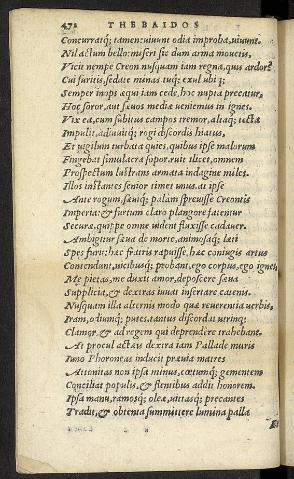 472 THEBAIDOS
Concurratq; tamen: uiuunt odia improba, uiuunt.
Nil actum bello: miseri sic dum arma mouetis,
Vicit nempe Creon nusquam iam regna, quis ardor?
Cui furitis, sedate minas tuq; exul ubiq;
Semper inops æqui iam cede, hoc nupta precatur,
Hoc soror, aut sæuos media ueniemus in ignes.
Vix ea, cum subitus campos tremor, altaq; tecta
Impulit, adiuuitq; rogi discordis hiatus,
Et uigilum turbata quies, quibus ipse malorum
Fingebat simulacra sopor. ruit ilicet, omnem
Prospectum lustrans armata indagine miles.
Illos instantes senior timet unus. at ipsæ
Ante rogum, sæuiq; palam spreuisse Creontis
Imperia: & furtum claro plangore fatentur
Securæ, quippe omne uident fluxisse cadauer.
Ambigitur sæua de morte, animosaq; læti
Spes furit: hæc fratris rapuisse, hæc coniugis artus
Contendunt, uicibusq; probant. ego corpus, ego ignes,
Me pietas, me duxit amor, deposcere sæua
Supplicia, & dextras iuuat insertare catenis.
Nusquam illa alternis modo quæ reuerentia uerbis,
Iram, odiumq; putes, tantus discordat utrinq;
Clamor, & ad regem qui deprendere trahebant.
At procul actæis dextra iam Pallade muris
Iuno Phoroneas inducit præuia matres
Attonitas non ipsa minus, cœtumq; gementem
Conciliat populis, & fletibus addit honorem.
Ipsa manu, ramosq; oleæ, uittasq; precantes
Tradit, & obtenta summittere lumina palla